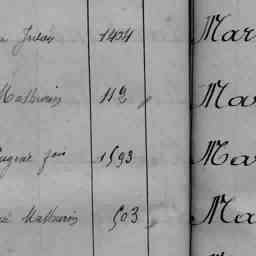 Julien 1404 Mar
Mathurin 112 Mar
Eugène fois 1593 Mar
Mathurin 503 Mar